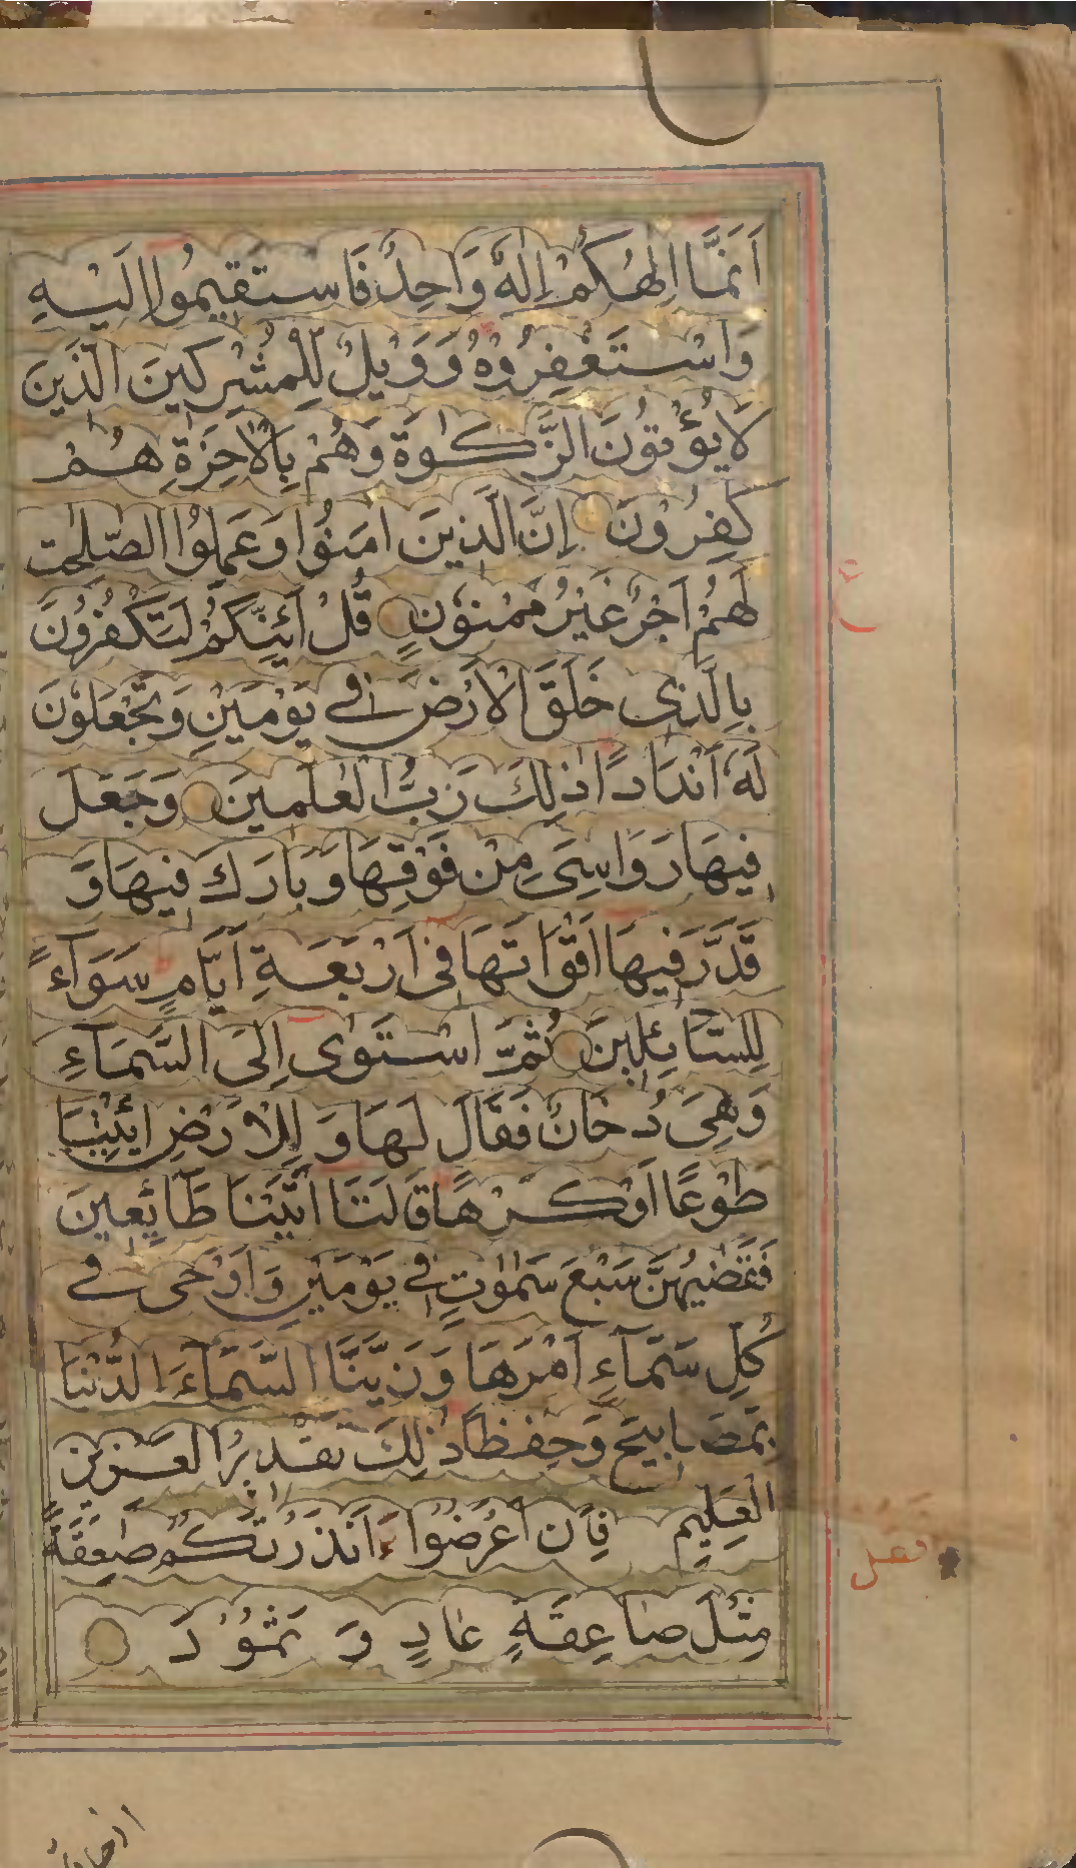 اَنَّمَا اِلٰهُكُمْ اِلٰهٌ وَاحِدٌ فَاسْتَقِيمُوا اِلَيْهِ
وَاسْتَغْفِرُوهُ وَوَيْلٌ لِلْمُشْرِكِينَ الَّذِينَ
لَا يُؤْتُونَ الزَّكٰوةَ وَهُمْ بِالْاٰخِرَةِ هُمْ
كٰفِرُونَ اِنَّ الَّذِينَ اٰمَنُوا وَعَمِلُوا الصّٰلِحٰتِ
لَهُمْ اَجْرٌ غَيْرُ مَمْنُوْنٍ قُلْ اَئِنَّكُمْ لَتَكْفُرُونَ
بِالَّذِى خَلَقَ الْاَرْضَ فِى يَوْمَيْنِ وَتَجْعَلُوْنَ
لَهٗ اَنْدَادًا ذٰلِكَ رَبُّ الْعٰلَمِينَ وَجَعَلَ
فِيهَا رَوَاسِىَ مِنْ فَوْقِهَا وَبَارَكَ فِيهَا وَ
قَدَّرَ فِيهَا اَقْوَاتَهَا فِى اَرْبَعَةِ اَيَّامٍ سَوَآءً
لِلسَّآئِلِينَ ثُمَّ اسْتَوٰى اِلَى السَّمَآءِ
وَهِىَ دُخَانٌ فَقَالَ لَهَا وَ لِلْاَرْضِ ائْتِيَا
طَوْعًا اَوْ كَرْهًا قَالَتَا اَتَيْنَا طَآئِعِينَ
فَقَضٰيهُنَّ سَبْعَ سَمٰوٰتٍ فِى يَوْمَيْنِ وَاَوْحٰى فِى
كُلِّ سَمَآءٍ اَمْرَهَا وَزَيَّنَّا السَّمَآءَ الدُّنْيَا
بِمَصَابِيحَ وَحِفْظًا ذٰلِكَ تَقْدِيرُ الْعَزِيزِ
الْعَلِيمِ فَاِنْ اَعْرَضُوا ءَاَنْذَرْتُكُمْ صٰعِقَةً
مِثْلَ صَاعِقَةِ عَادٍ وَ ثَمُوْدَ
ع